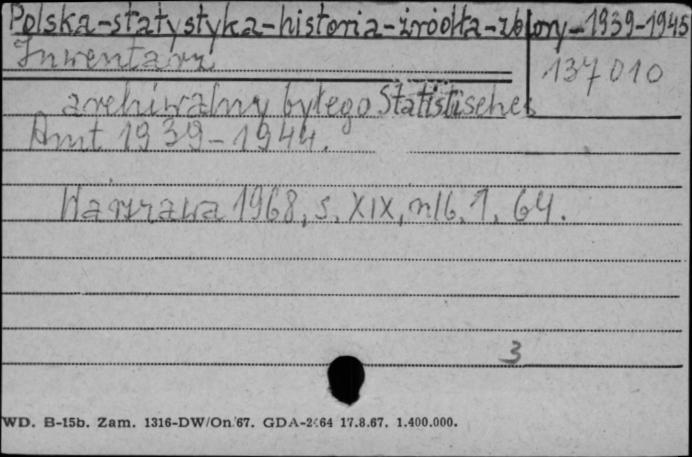 Polska-statystyka-historia-źródła-zbiory-1939-1945
Inwentarz
137010
archiwalny byłego Statistisches
Amt 1939-1944.
Warszawa 1968, s. XIX, nlb. 1, 64.
3
WD. B-15b. Zam. 1316-DW/On/67. GDA-2464 17.8.67. 1.400.000.